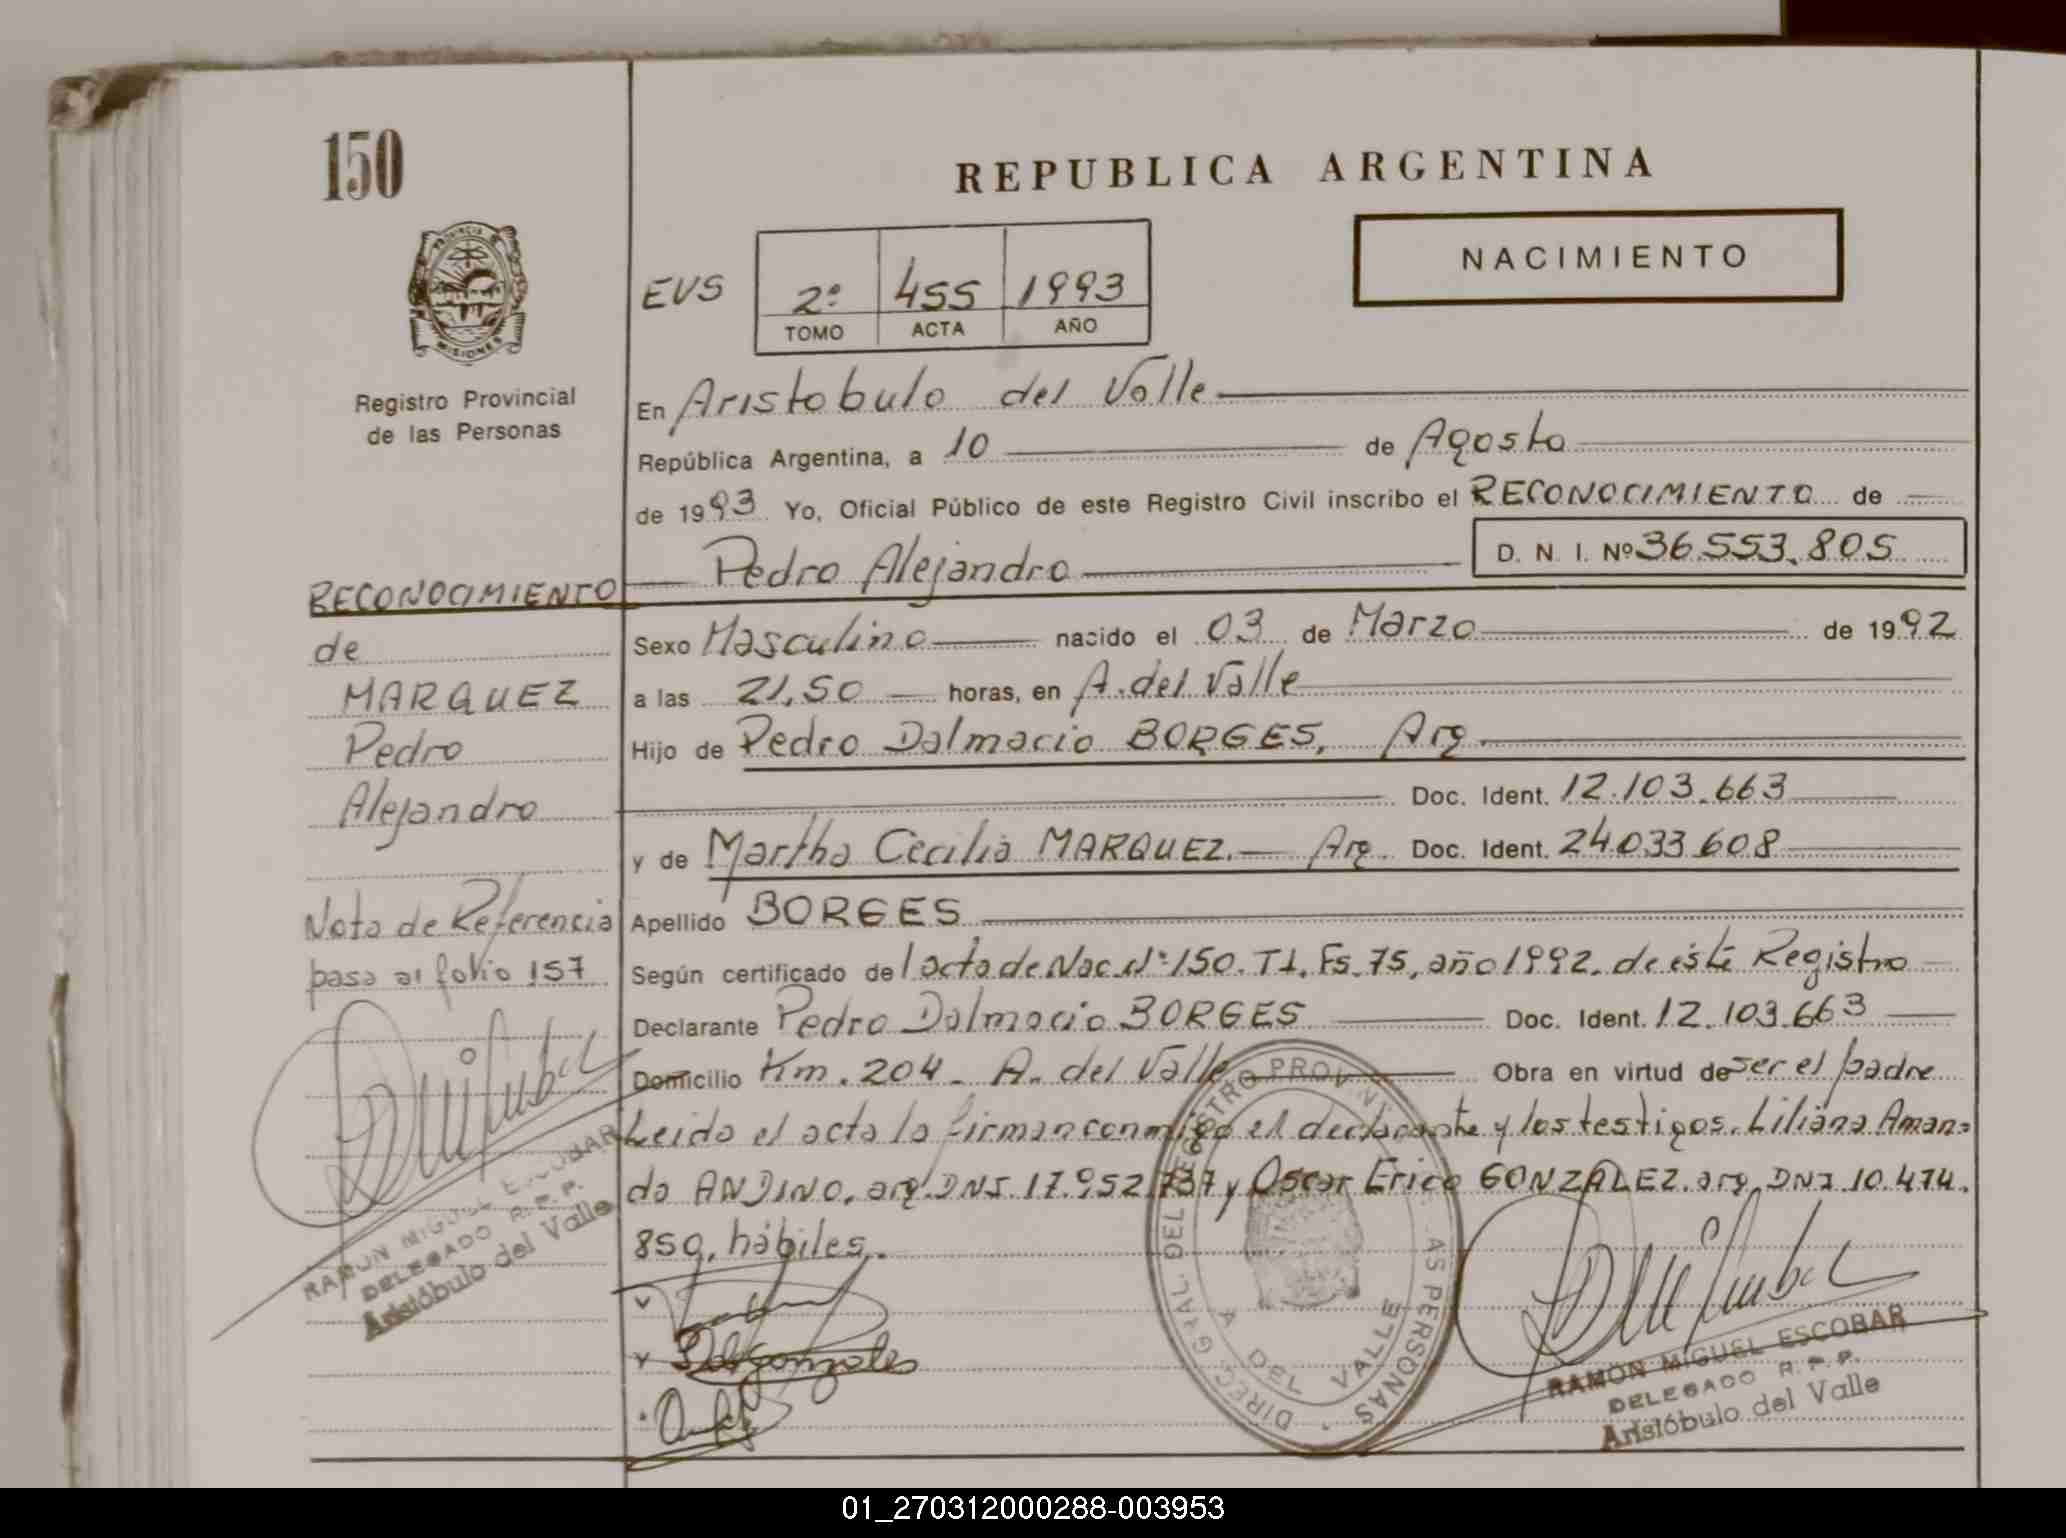 150
REPUBLICA ARGENTINA
PROVINCIA DE MISIONES
NACIMIENTO
EVS 2º 455 1993
TOMO ACTA AÑO
Registro Provincial
de las Personas
En Aristobulo del Valle
República Argentina, a 10 de Agosto
de 1993 Yo, Oficial Público de este Registro Civil inscribo el RECONOCIMIENTO de
Pedro Alejandro D. N. I. Nº 36.553.805
RECONOCIMIENTO
de
MARQUEZ
Pedro
Alejandro
Nota de Referencia
pasa al folio 157
RAMON MIGUEL ESCOBAR
DELEGADO R.P.P.
Aristóbulo del Valle
Sexo Masculino nacido el 03 de Marzo de 1992
a las 21,50 horas, en A. del Valle
Hijo de Pedro Dalmacio BORGES, Arg.
Doc. Ident. 12.103.663
y de Martha Cecilia MARQUEZ. Arg. Doc. Ident. 24.033.608
Apellido BORGES
Según certificado de l acta de Nac. Nº 150. T1. Fs. 75, año 1992. de éste Registro
Declarante Pedro Dalmacio BORGES Doc. Ident. 12.103.663
Domicilio Km. 204 - A. del Valle Obra en virtud de ser el padre
Leida el acta la firman conmigo el declarante y los testigos. Liliana Aman=
da ANDINO, arg. DNI. 17.952.737 y Oscar Erico GONZALEZ. arg. DNI 10.474.
859, hábiles.
DIREC. GRAL. DEL REGISTRO PROVIN AS PERSONAS
A DEL VALLE
RAMON MIGUEL ESCOBAR
DELEGADO R.P.P.
Aristóbulo del Valle
01_270312000288-003953